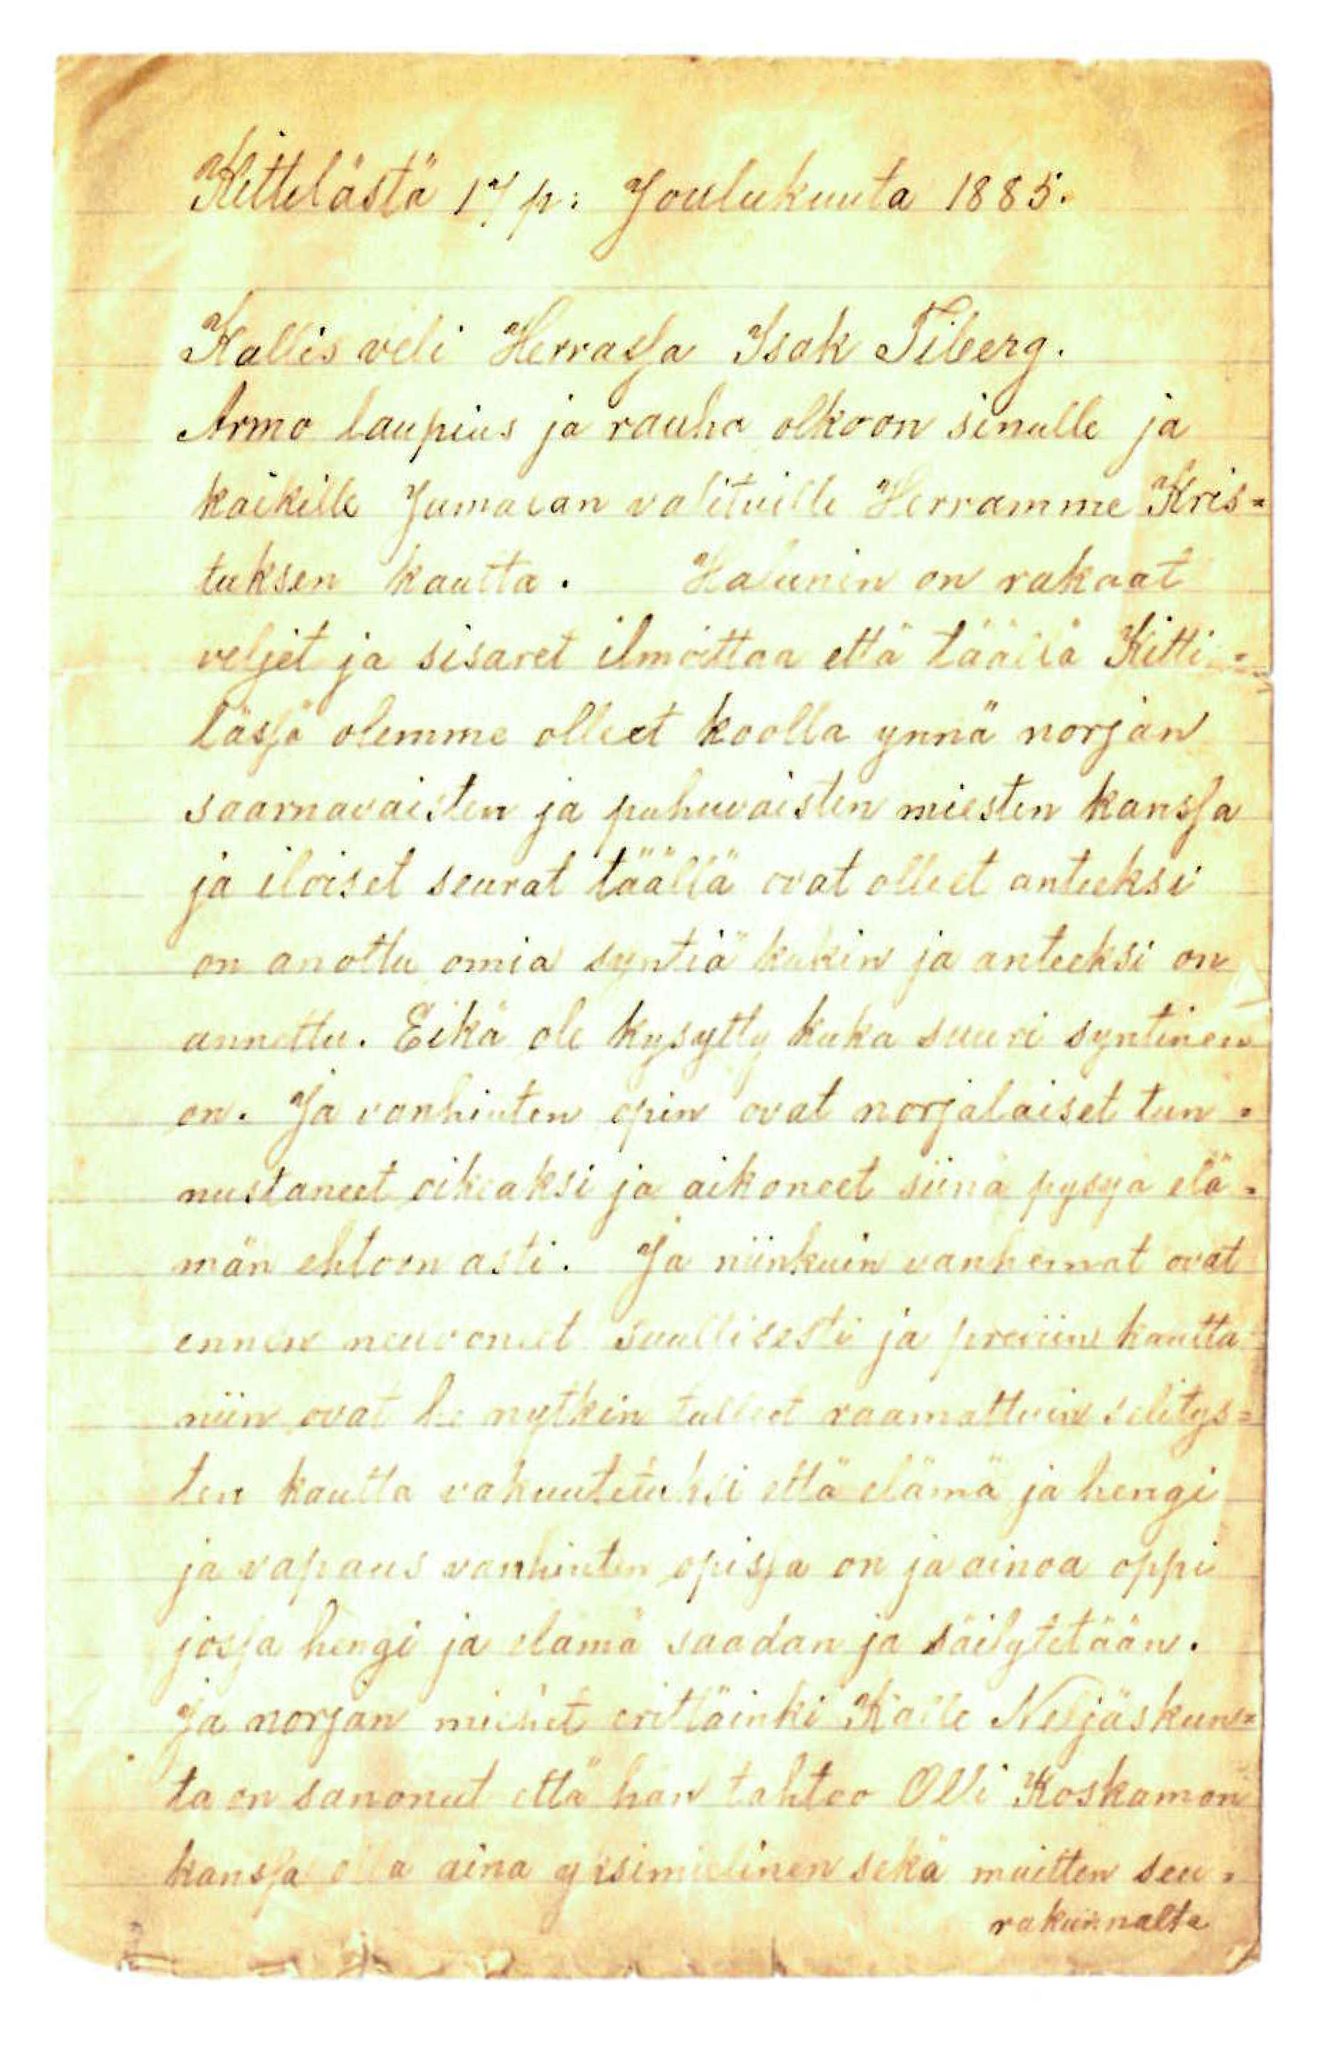 Kittelästä 17 p: Joulukuuta 1885.
Kallis veli Herrassa Isak Tiberg.
Armo laupius ja rauha olkoon sinulle ja
kaikille Jumalan valituille Herramme Kris=
tuksen kautta. Halunin on rakaat
veljet ja sisaret ilmoittaa että täällä Kitti=
lässä olemme olleet koolla ynnä norjan
saarnavaisten ja puhuvaisten miesten kanssa
ja iloiset seurat täällä ovat olleet anteeksi
on anottu omia syntiä kukin ja anteeksi on
annettu. Eikä ole kysytty kuka suuri syntinen
on. Ja vanhinten opin ovat norjalaiset tun=
nustaneet oikiaksi ja aikoneet siinä pysyä elä=
män ehtoon asti. Ja niinkuin vanhemat ovat
ennen neuvoneet suullisesti ja kautta
niin ovat he nytkin tulleet raamattuin selitys=
ten kautta vakuutetuksi että elämä ja hengi
ja vapaus vanhinten opissa on ja ainoa oppi
jossa hengi ja elämä saadan ja säilytetään.
Ja norjan miehet erittäinki Kalle Neljäskun=
ta on sanonut että hän tahtoo Olli Koskamon
kanssa olla aina yksimielinen sekä muitten seu=
rakunnalta